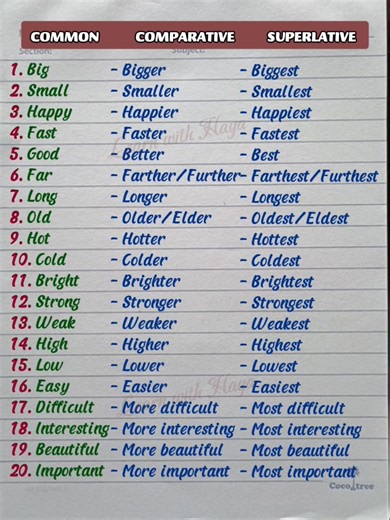 COMMON COMPARATIVE SUPERLATIVE
Section: Subject:
1. Big - Bigger - Biggest
2. Small - Smaller - Smallest
3. Happy - Happier - Happiest
4. Fast - Faster - Fastest
5. Good - Better - Best
6. Far - Farther/Further - Farthest/Furthest
7. Long - Longer - Longest
8. Old - Older/Elder - Oldest/Eldest
9. Hot - Hotter - Hottest
10. Cold - Colder - Coldest
11. Bright - Brighter - Brightest
12. Strong - Stronger - Strongest
13. Weak - Weaker - Weakest
14. High - Higher - Highest
15. Low - Lower - Lowest
16. Easy - Easier - Easiest
17. Difficult - More difficult - Most difficult
18. Interesting - More interesting - Most interesting
19. Beautiful - More beautiful - Most beautiful
20. Important - More important - Most important
Learn with Haya
Learn with Haya
Coco tree